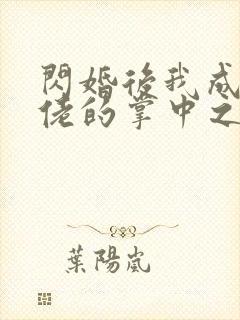 閃婚後我成
佬的掌中之
葉陽嵐